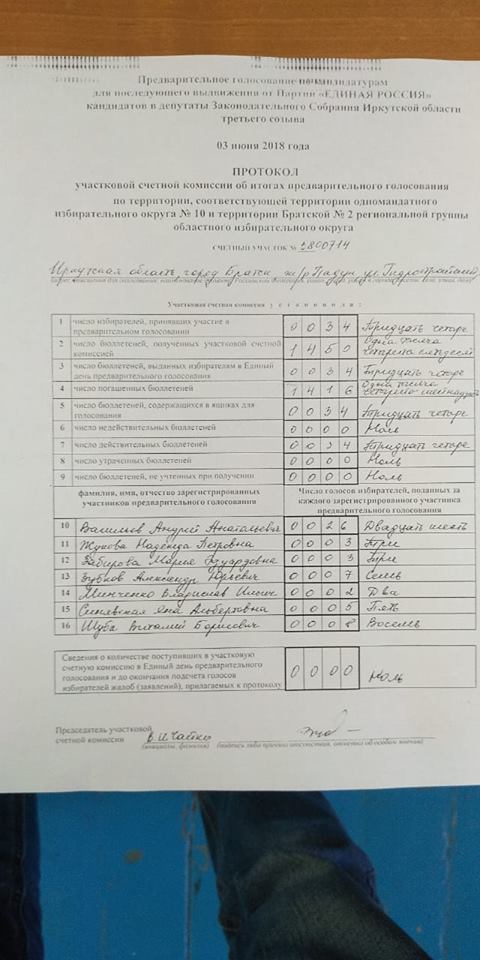 Предварительное голосование по кандидатурам
для последующего выдвижения от Партии «ЕДИНАЯ РОССИЯ»
кандидатов в депутаты Законодательного Собрания Иркутской области
третьего созыва
03 июня 2018 года
ПРОТОКОЛ
участковой счетной комиссии об итогах предварительного голосования
по территории, соответствующей территории одномандатного
избирательного округа № 10 и территории Братской № 2 региональной группы
областного избирательного округа
СЧЕТНЫЙ УЧАСТОК № 3800714
Иркутская область, город Братск ж/р Падун ул. Гидростроителей,
Участковая счетная комиссия установила:
1 число избирателей, принявших участие в предварительном голосовании 0 0 3 4 Тридцать четыре
2 число бюллетеней, полученных участковой счетной комиссией 1 4 5 0 Одна тысяча четыреста пятьдесят
3 число бюллетеней, выданных избирателям в Единый день предварительного голосования 0 0 3 4 Тридцать четыре
4 число погашенных бюллетеней 1 4 1 6 Одна тысяча четыреста шестнадцать
5 число бюллетеней, содержащихся в ящиках для голосования 0 0 3 4 Тридцать четыре
6 число недействительных бюллетеней 0 0 0 0 Ноль
7 число действительных бюллетеней 0 0 3 4 Тридцать четыре
8 число утраченных бюллетеней 0 0 0 0 Ноль
9 число бюллетеней, не учтенных при получении 0 0 0 0 Ноль
фамилия, имя, отчество зарегистрированных участников предварительного голосования
Число голосов избирателей, поданных за каждого зарегистрированного участника предварительного голосования
10 Андрей Анатольевич 0 0 2 6 Двадцать шесть
11 Жукова Надежда Петровна 0 0 0 3 Три
12 Забирова Мария Эдуардовна 0 0 0 3 Три
13 Зубков Александр Юрьевич 0 0 0 7 Семь
14 Минченко Владислав Ильич 0 0 0 2 Два
15 Синявская Яна Альбертовна 0 0 0 5 Пять
16 Шуба Виталий Борисович 0 0 0 8 Восемь
Сведения о количестве поступивших в участковую
счетную комиссию в Единый день предварительного
голосования и до окончания подсчета голосов
избирателей жалоб (заявлений), прилагаемых к протоколу 0 0 0 0 Ноль
Председатель участковой
счетной комиссии
(инициалы, фамилия) (подпись либо причина отсутствия, отметка об особом мнении)